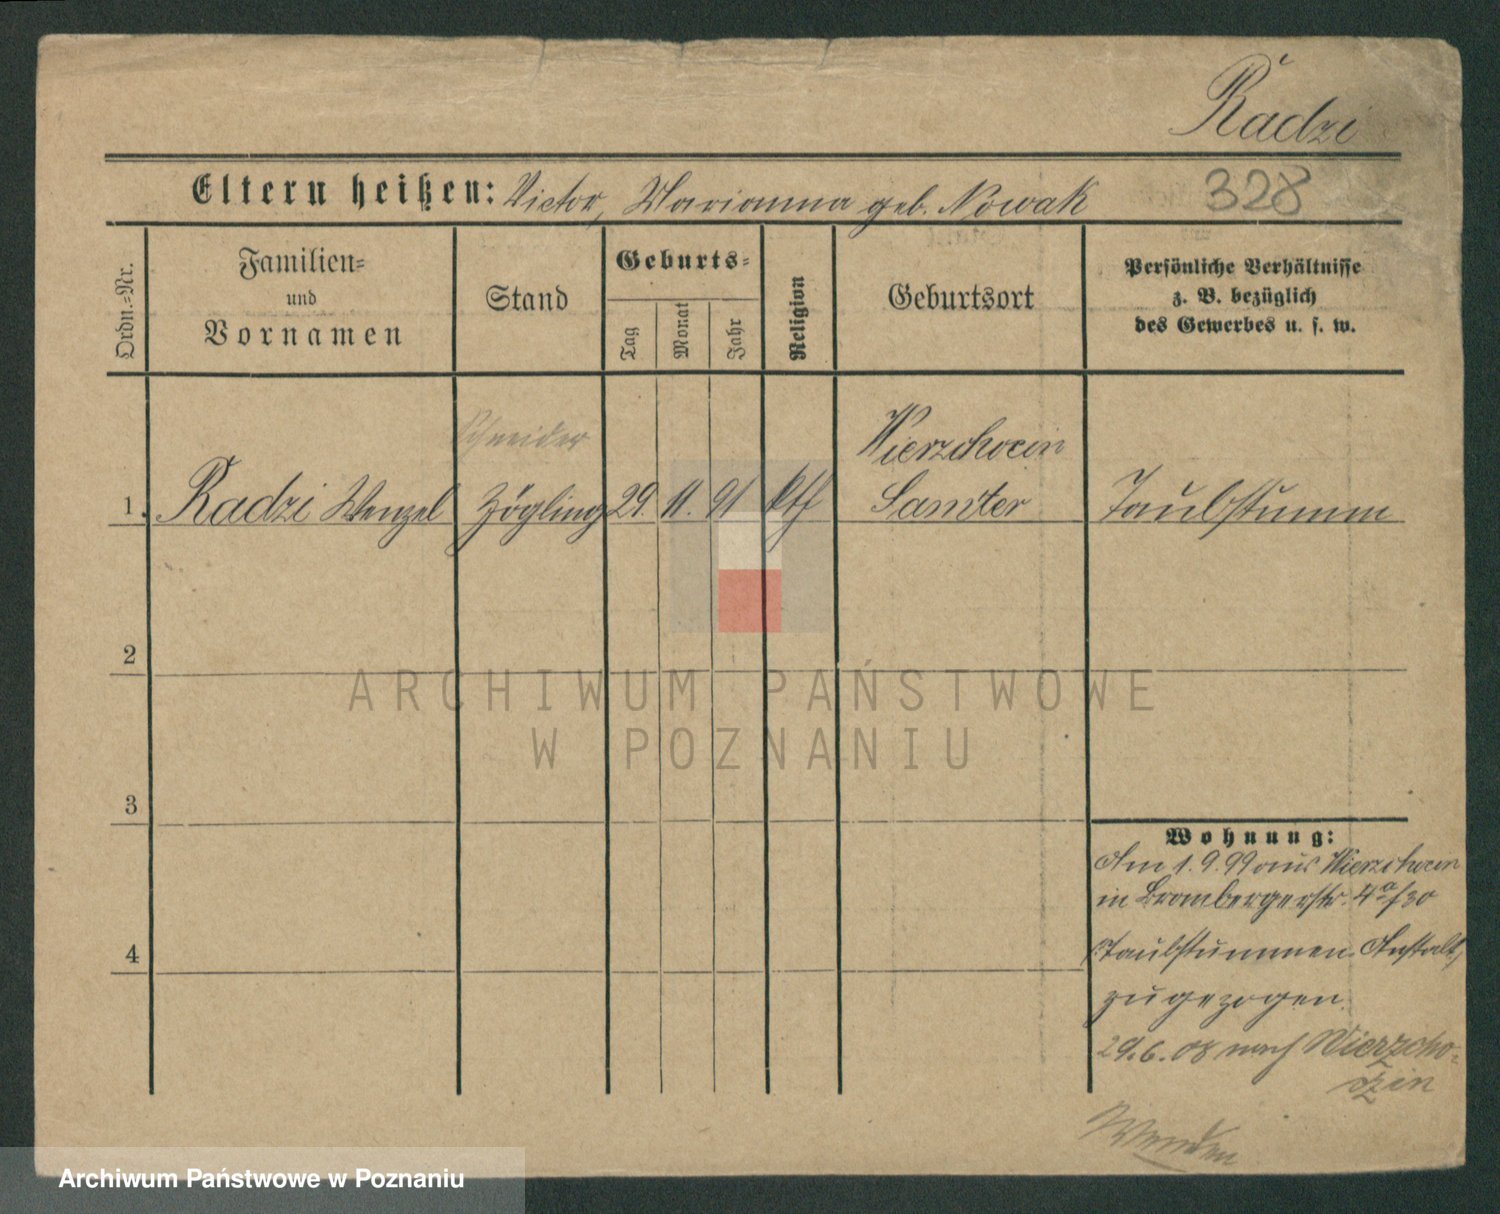 Radzi
328
Eltern heißen: Victor, Marianna geb. Nowak
Ordn.-Nr.
Familien-
und
Vornamen
Stand
Geburts-
Tag
Monat
Jahr
Religion
Geburtsort
Persönliche Verhältnisse
z. B. bezüglich
des Gewerbes u. s. w.
Schneider
Wierzchocin
1. Radzi Wenzel Zögling 29. 11. 91 kth Samter Taubstumm
2
3
4
Wohnung:
Am 1.9.99 aus Wierzchocin
in Brombergerstr. 4a
Taubstummen-Anstalt
zugezogen.
29.6.08 nach Wierzcho-
czin
Wenden
ARCHIWUM PAŃSTWOWE
W POZNANIU
Archiwum Państwowe w Poznaniu